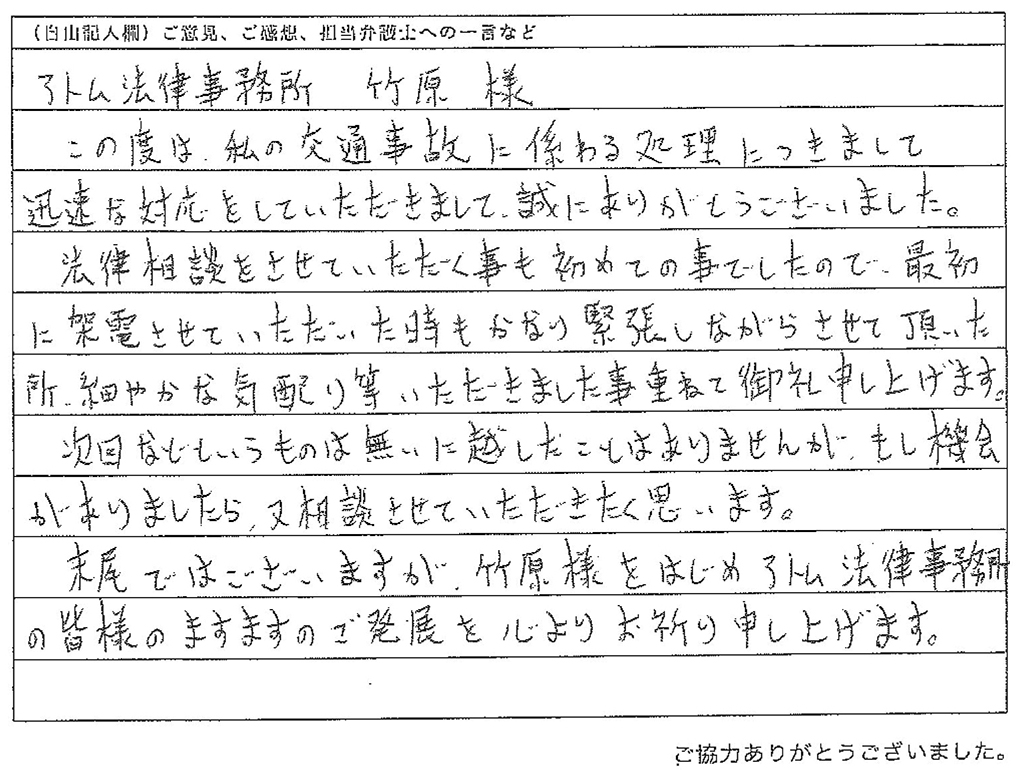 (自由記入欄)ご意見、ご感想、担当弁護士への一言など
アトム法律事務所 竹原 様
この度は、私の交通事故に係わる処理につきまして
迅速な対応をしていただきまして、誠にありがとうございました。
法律相談をさせていただく事も初めての事でしたので、最初
に架電させていただいた時もかなり緊張しながらさせて頂いた
所、細やかな気配り等いただきました事重ねて御礼申し上げます。
次回などというものは無いに越したことはありませんが、もし機会
がありましたら、又相談させていただきたく思います。
末尾ではございますが、竹原様をはじめアトム法律事務所
の皆様のますますのご発展を心よりお祈り申し上げます。
ご協力ありがとうございました。